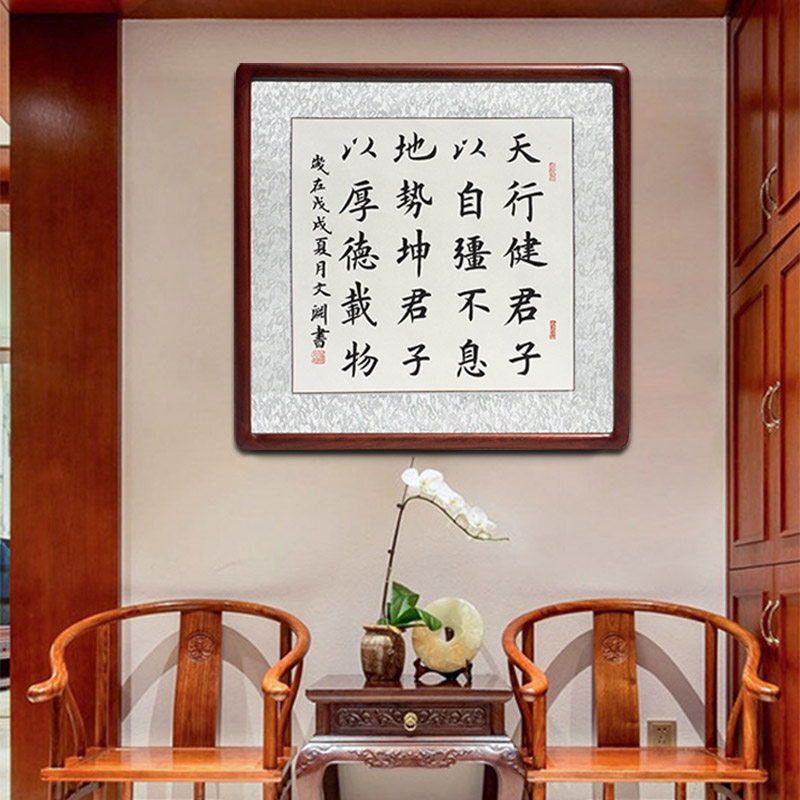 天行健君子
以自彊不息
地勢坤君子
以厚德載物
歲在戊戌夏月文渊書